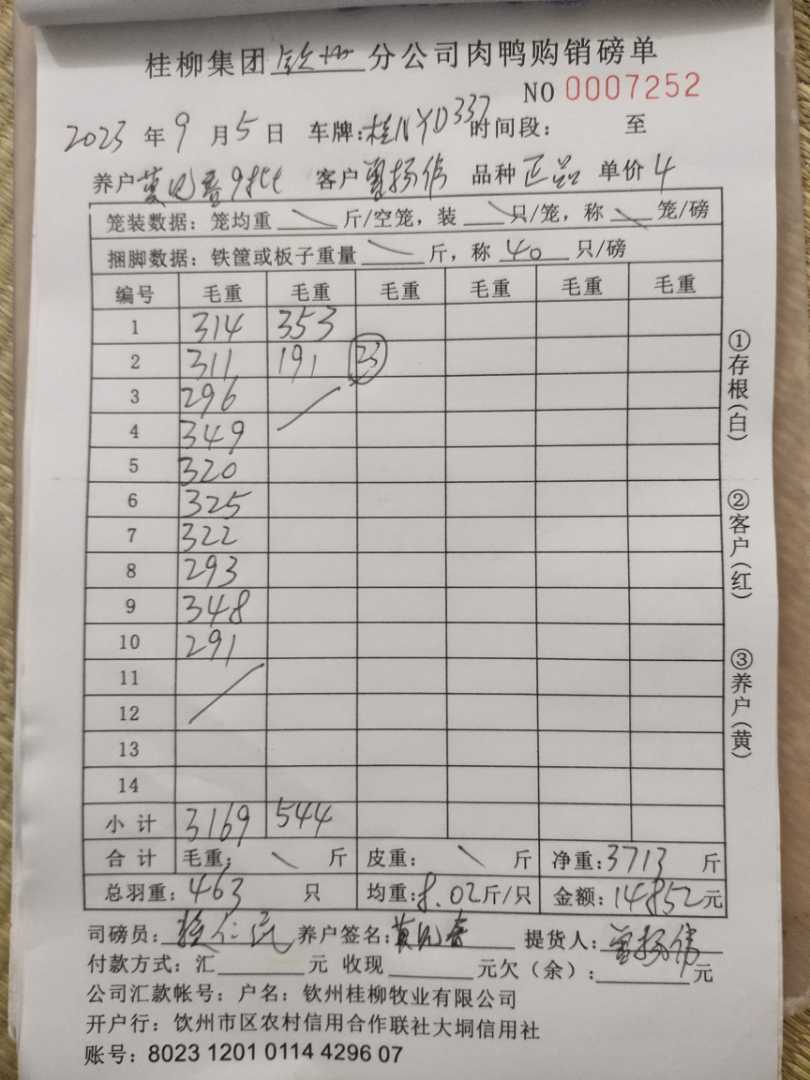 桂柳集团 钦州 分公司肉鸭购销磅单
NO 0007252
2023 年 9 月 5 日 车牌:桂NYD337 时间段: 至
养户 9批 客户 品种 正品 单价 4
笼装数据:笼均重 \ 斤/空笼,装 \ 只/笼,称 \ 笼/磅
捆脚数据:铁筐或板子重量 \ 斤,称 40 只/磅
编号 毛重 毛重 毛重 毛重 毛重 毛重
1 314 353
2 311 191 23
3 296
4 349
5 320
6 325
7 322
8 293
9 348
10 291
11
12
13
14
小计 3169 544
合计 毛重: \ 斤 皮重: \ 斤 净重:3713 斤
总羽重:463 只 均重:8.02斤/只 金额:14852元
司磅员: 养户签名: 提货人:
付款方式:汇 元 收现 元欠(余): 元
公司汇款帐号:户名:钦州桂柳牧业有限公司
开户行:钦州市区农村信用合作联社大垌信用社
账号:8023 1201 0114 4296 07
①存根(白)
②客户(红)
③养户(黄)